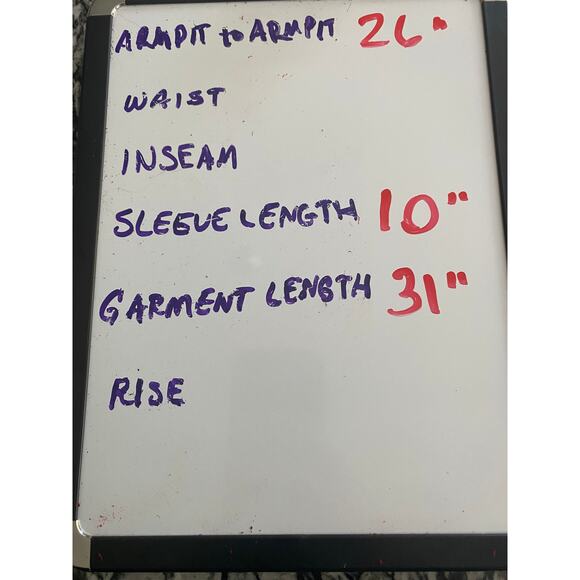 ARMPIT to ARMPIT 26"
WAIST
INSEAM
SLEEVE LENGTH 10"
GARMENT LENGTH 31"
RISE